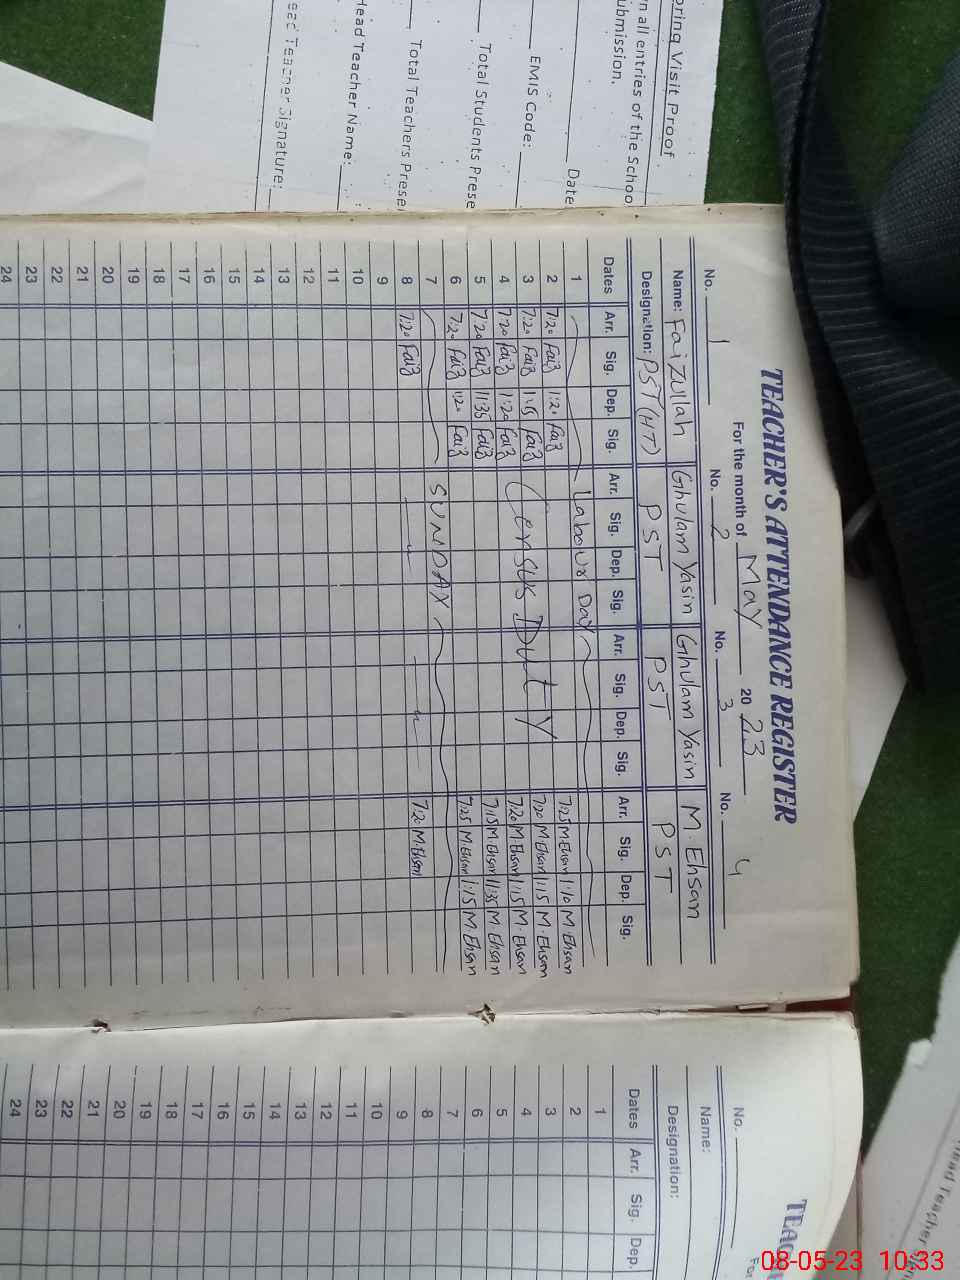 oring Visit Proof
n all entries of the Schoo
ubmission.
Date
EMIS Code:
Total Students Prese
Total Teachers Prese
Head Teacher Name:
ead Teacher Signature:
TEACHER'S ATTENDANCE REGISTER
For the month of May 2023
No. 1 No. 2 No. 3 No. 4
Name: Faizullah Ghulam Yasin Ghulam Yasin M. Ehsan
Designation: PST (HT) PST PST PST
Dates Arr. Sig. Dep. Sig. Arr. Sig. Dep. Sig. Arr. Sig. Dep. Sig. Arr. Sig. Dep. Sig.
1 Labour Day
2 7:20 Faiz 1:20 Faiz 7:25 M.Ehsan 1:10 M.Ehsan
3 7:20 Faiz 1:15 Faiz Census Duty 7:20 M.Ehsan 1:15 M.Ehsan
4 7:20 Faiz 1:20 Faiz 7:20 M.Ehsan 1:15 M.Ehsan
5 7:20 Faiz 11:35 Faiz 7:15 M.Ehsan 11:35 M.Ehsan
6 7:20 Faiz 1:20 Faiz 7:25 M.Ehsan 1:15 M.Ehsan
7 SUNDAY
8 7:20 Faiz 7:20 M.Ehsan
9
10
11
12
13
14
15
16
17
18
19
20
21
22
23
24
TEAC
No.
Name:
Designation:
Dates Arr. Sig. Dep.
1
2
3
4
5
6
7
8
9
10
11
12
13
14
15
16
17
18
19
20
21
22
23
24
Head Teacher
08-05-23 10:33